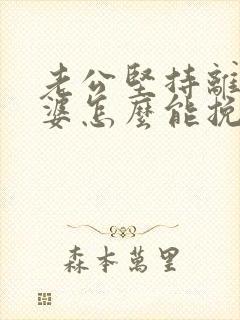 老公堅持離
婆怎麼能挽
森本萬里